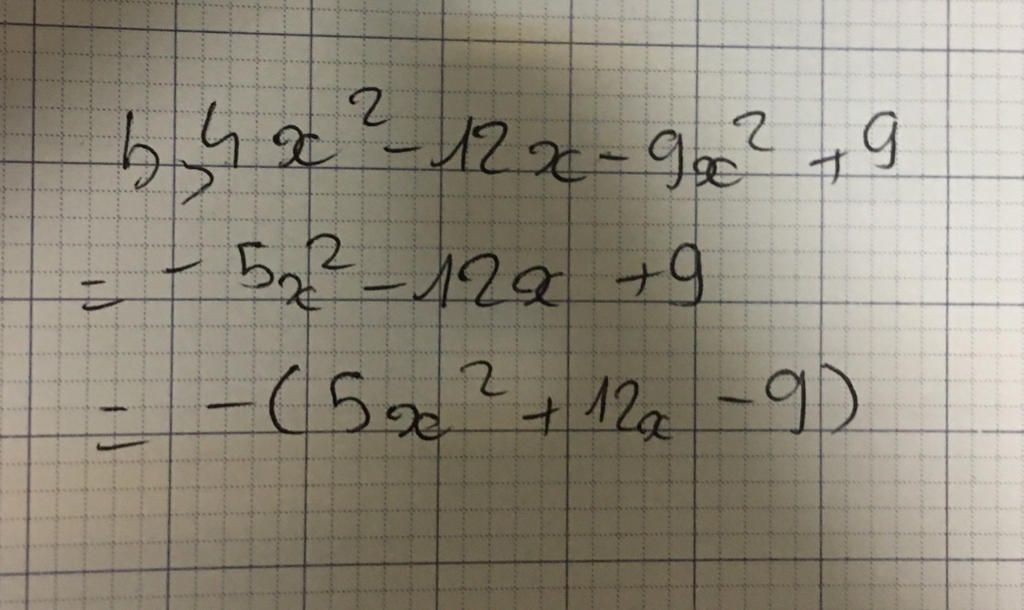 b, 4x² - 12x - 9x² + 9
= - 5x² - 12x + 9
= - ( 5x² + 12x - 9 )